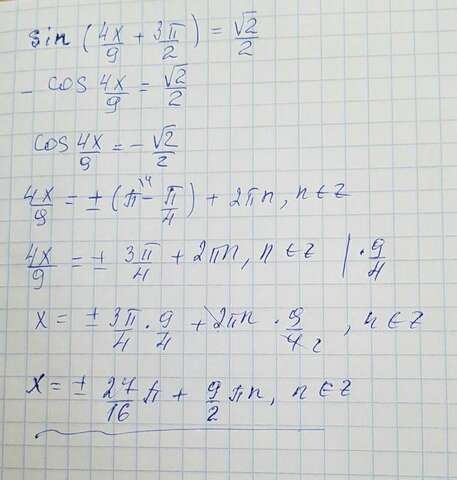 sin (4x/9 + 3π/2) = √2/2
- cos 4x/9 = √2/2
cos 4x/9 = - √2/2
4x/9 = ± (π^\4 - π/4) + 2πn, n ∈ z
4x/9 = ± 3π/4 + 2πn, n ∈ z | · 9/4
x = ± 3π/4 · 9/4 + 2πn · 9/4 2, n ∈ z
x = ± 27/16 π + 9/2 πn, n ∈ z